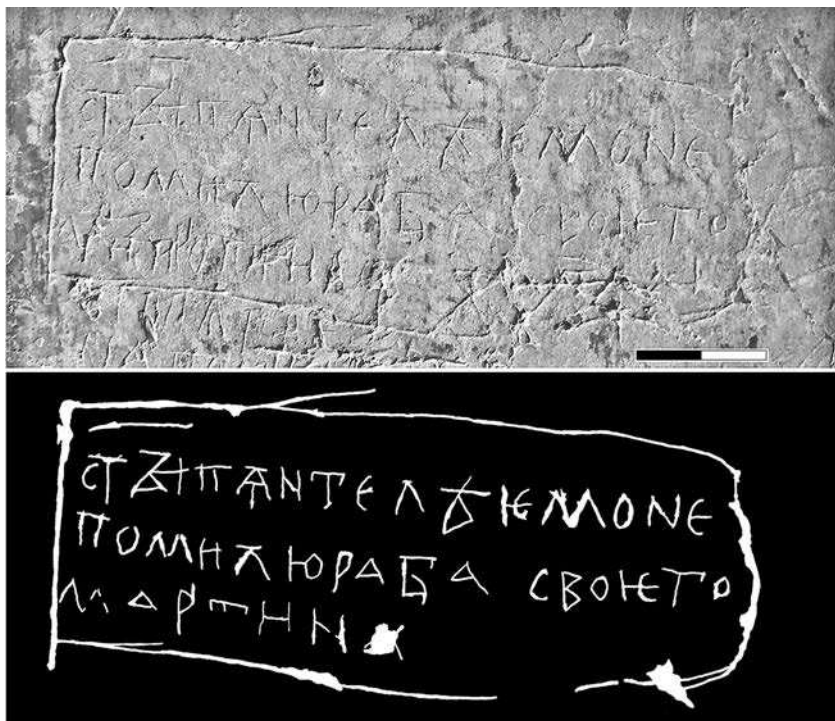 СТЪІПАНТЕЛѢѤМОNЕ
ПОМИЛЮРАБА СВОѤГО
МАРТИНА